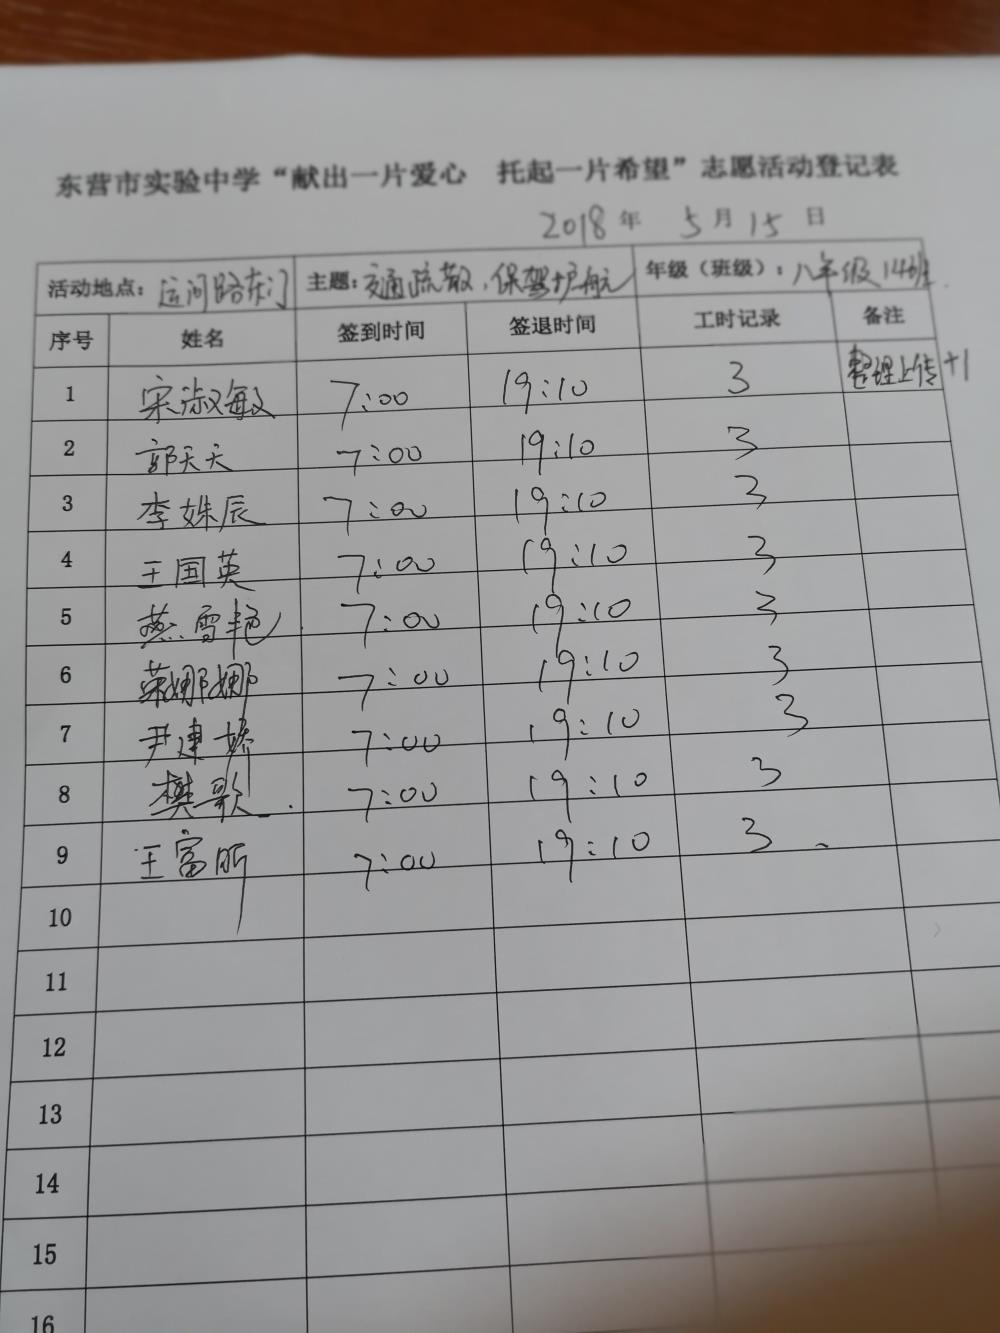 东营市实验中学“献出一片爱心 托起一片希望”志愿活动登记表
2018年 5月15日
活动地点：运河路东门 主题：交通疏散、保驾护航 年级（班级）：八年级14班.
序号 姓名 签到时间 签退时间 工时记录 备注
1 宋淑敏 7:00 19:10 3 整理上传+1
2 郭天天 7:00 19:10 3
3 李姝辰 7:00 19:10 3
4 王国英 7:00 19:10 3
5 燕雪艳 7:00 19:10 3
6 荣娜娜 7:00 19:10 3
7 尹建娇 7:00 19:10 3
8 樊歌 7:00 19:10 3
9 王富昕 7:00 19:10 3
10
11
12
13
14
15
16